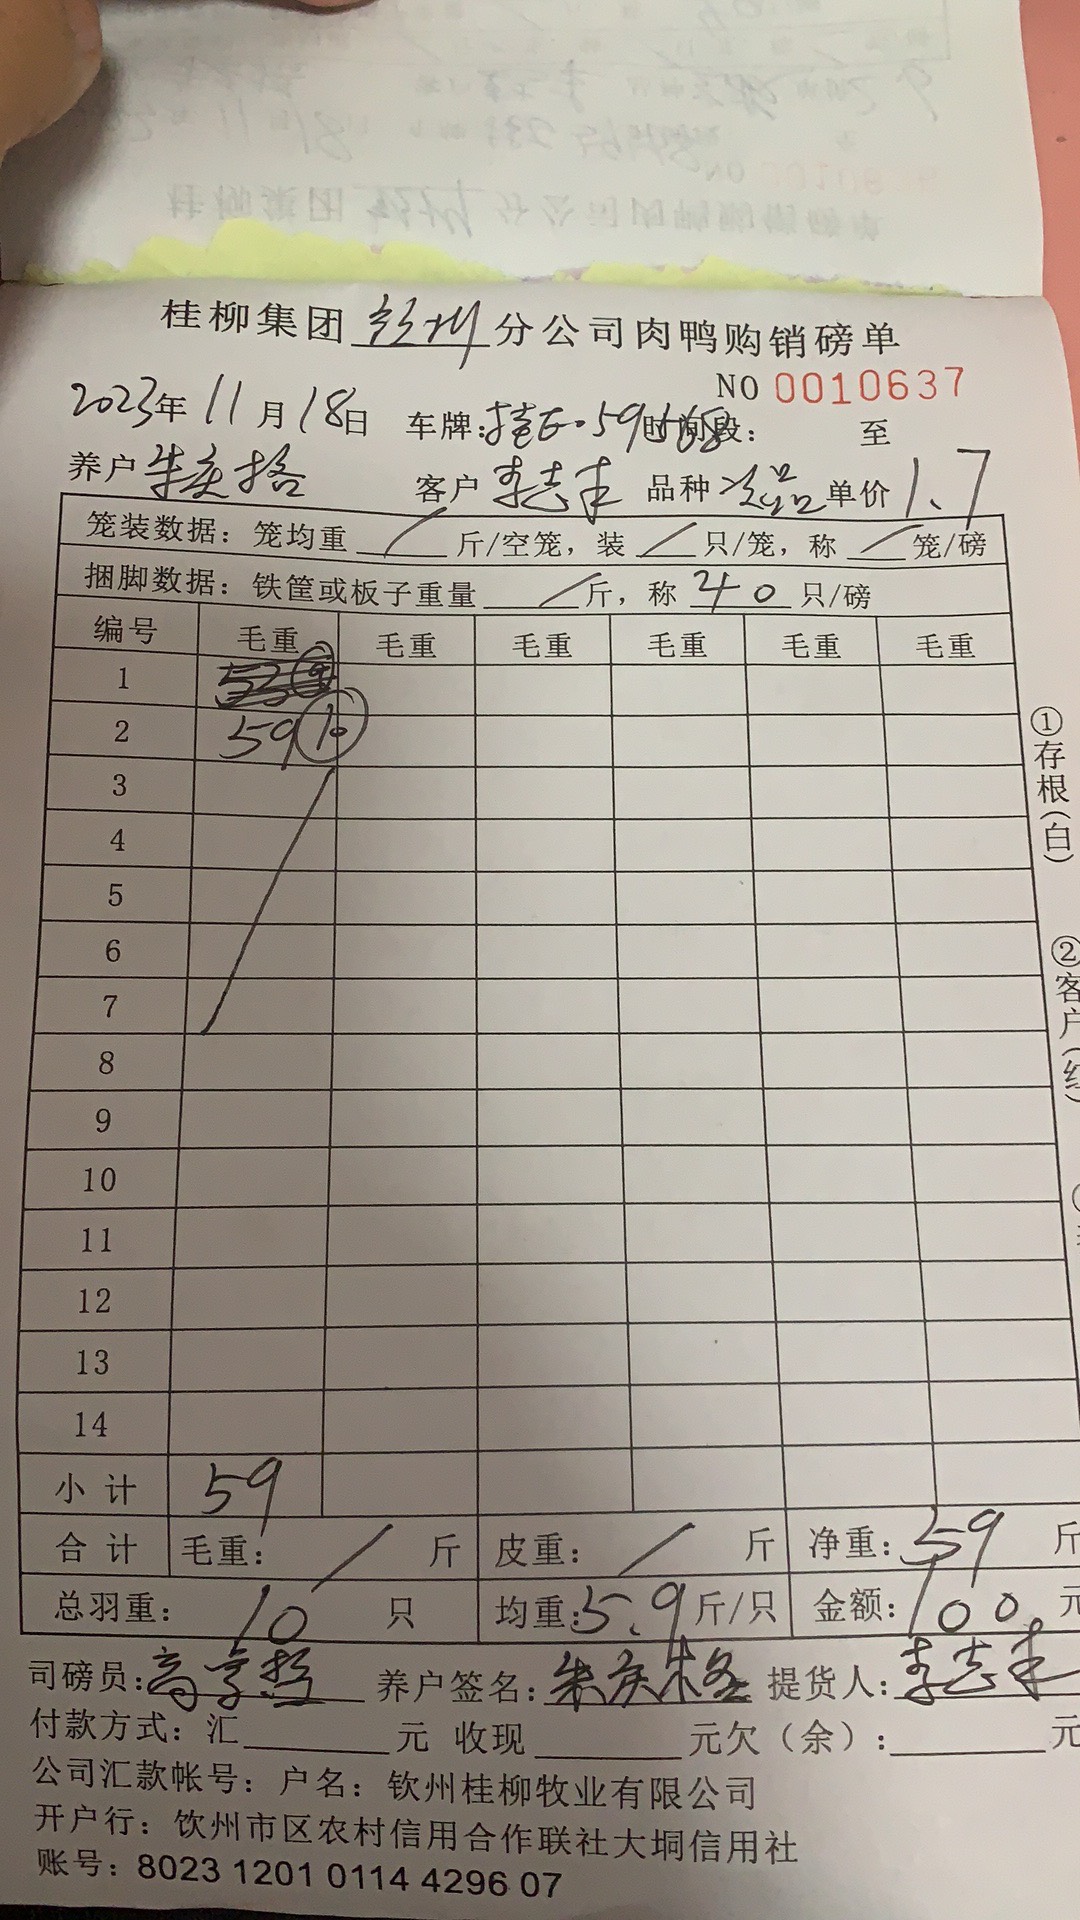 桂柳集团钦州分公司肉鸭购销磅单
NO 0010637
2023年11月18日 车牌: 时间段: 至
养户朱庆格 客户李志丰 品种次品单价1.7
笼装数据：笼均重 / 斤/空笼，装 / 只/笼，称 / 笼/磅
捆脚数据：铁筐或板子重量 / 斤，称 40 只/磅
编号 毛重 毛重 毛重 毛重 毛重 毛重
1
2 59 10
3
4
5
6
7
8
9
10
11
12
13
14
小计 59
合计 毛重: / 斤 皮重: / 斤 净重: 59 斤
总羽重: 10 只 均重:5.9斤/只 金额:100.元
司磅员: 养户签名:朱庆格 提货人:李志丰
付款方式：汇 元 收现 元欠（余）: 元
公司汇款帐号：户名：钦州桂柳牧业有限公司
开户行：饮州市区农村信用合作联社大垌信用社
账号：8023 1201 0114 4296 07
①存根(白)
②客户(红)